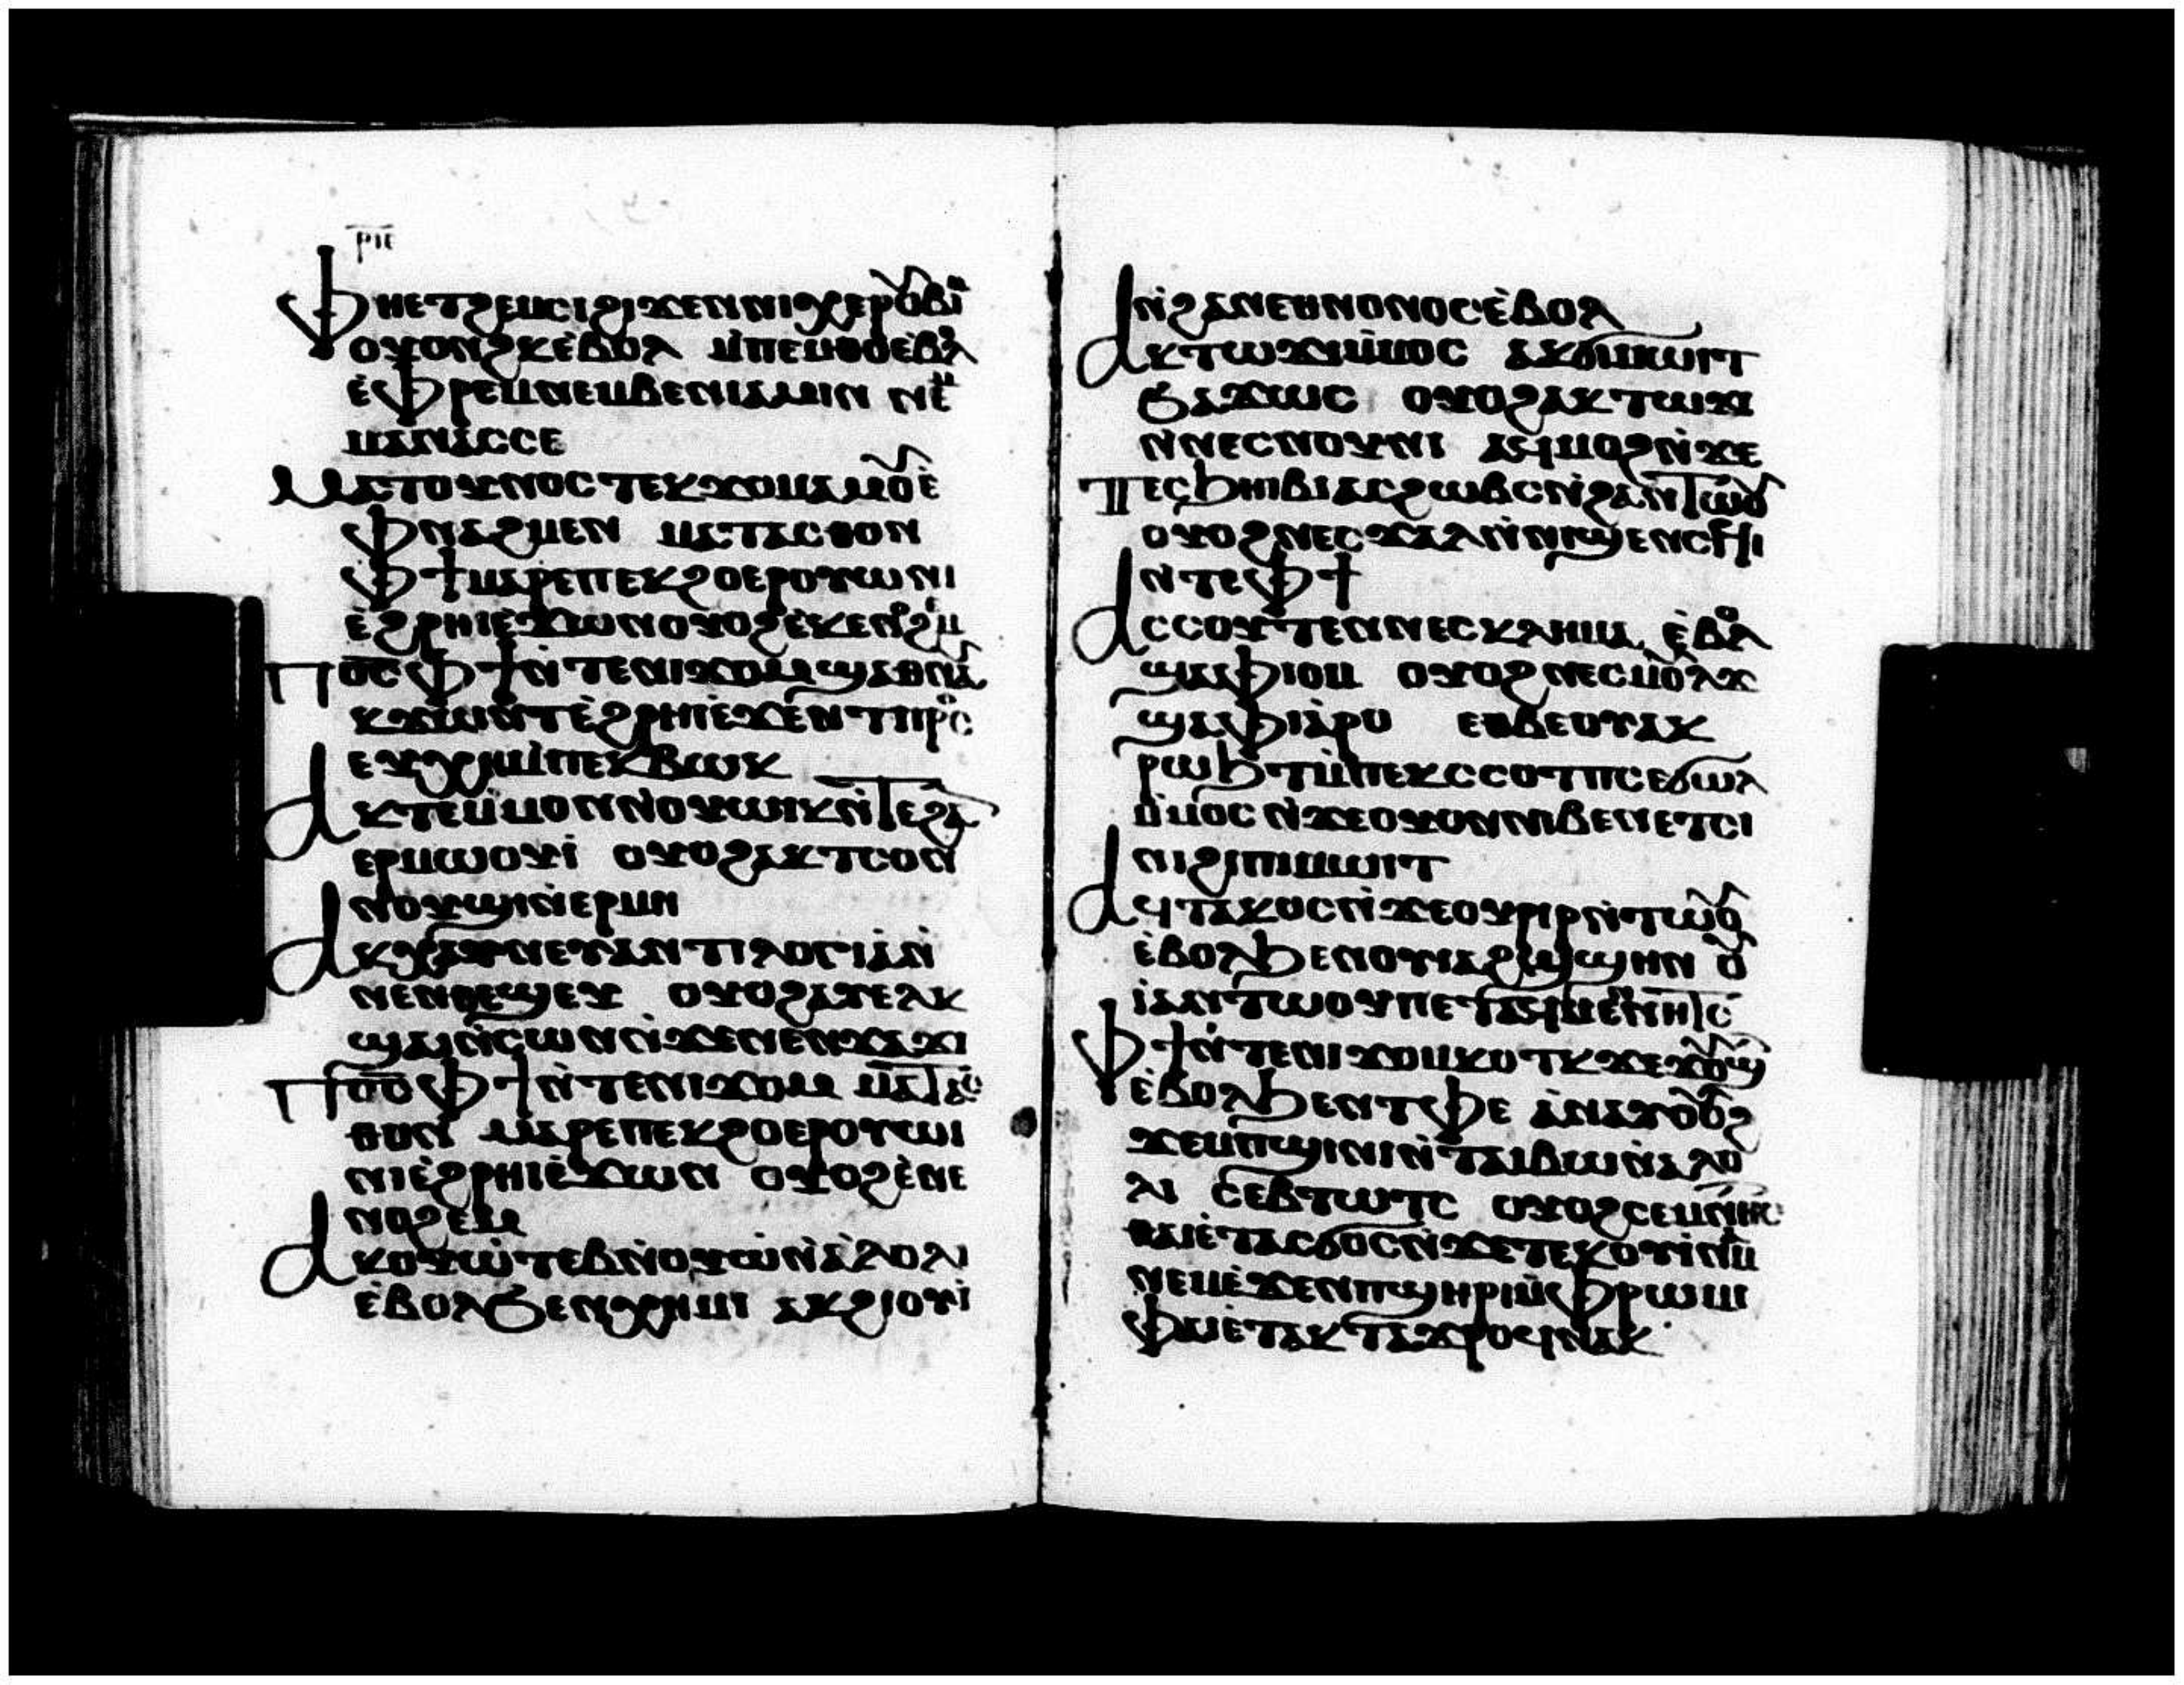 ⲣⲓⲉ
ⲪⲎⲈⲦϨⲈⲘⲤⲒϨⲒϪⲈⲚⲚⲒⲬⲈⲢⲞⲨⲂⲒⲘ
ⲞⲨⲞⲚϨⲔⲈ̀ⲂⲞⲖ ⲘⲠⲈⲘⲐⲞⲈ̀ⲂⲞⲖ
Ⲉ̀ⲪⲢⲈⲘⲚⲈⲘⲂⲈⲚⲒⲀⲘⲒⲚ ⲚⲈⲘ
ⲘⲀⲚⲀⲤⲤⲈ
ⲘⲀⲦⲞⲨⲚⲞⲤⲦⲈⲔϪⲞⲘⲀⲘⲞⲨⲈ̀
ⲪⲚⲀϨⲘⲈⲚ ⲘⲀⲦⲀⲤⲐⲞⲚ
ⲪϮⲘⲀⲢⲈⲠⲈⲔϨⲞⲈⲢⲞⲨⲰⲒⲚⲒ
Ⲉ̀ϨⲢⲎⲒⲈ̀ϪⲰⲚⲞⲨⲞϨⲈ̀ⲔⲈⲚⲞϨⲘ
ⲠⲞ̅Ⲥ̅ⲪϮⲚ̀ⲦⲈⲚⲒϪⲞⲘϢⲀⲐⲚⲀⲨ
ⲔϪⲰⲚⲦⲈ̀ϨⲢⲎⲒⲈ̀ϪⲈⲚⲦⲠⲢⲞⲤ
ⲈⲨⲬⲎⲘ̀ⲠⲈⲔⲂⲰⲔ
ⲀⲔⲦⲈⲘⲘⲞⲚⲚ̀ⲞⲨⲰⲒⲔⲚ̀ⲦⲈϨⲀⲚ
ⲈⲢⲘⲰⲞⲨⲒ̀ ⲞⲨⲞϨⲀⲔⲦⲤⲞⲚ
ⲚⲞⲨϢⲒⲚ̀ⲈⲢⲘⲎ
ⲀⲔⲬⲀⲨⲚⲈⲨⲀⲚⲦⲒⲖⲞⲄⲒⲀⲚ̀
ⲚⲈⲚⲐⲈϢⲈⲨ ⲞⲨⲞϨⲀⲨⲈⲖⲔ
ϢⲀⲒⲚ̀ⲤⲰⲚⲚ̀ϪⲈⲚⲈⲚϪⲀϪⲒ
ⲠⲞ̅Ⲥ̅ⲪϮⲚ̀ⲦⲈⲚⲒϪⲞⲘ ⲘⲀⲦⲀⲤ
ⲐⲞⲚ ⲘⲀⲢⲈⲠⲈⲔϨⲞⲈⲢⲞⲨⲰⲒ
ⲚⲒⲈ̀ϨⲢⲎⲒⲈ̀ϪⲰⲚ ⲞⲨⲞϨⲈ̀ⲚⲈ
ⲚⲞϨⲈⲘ
ⲀⲔⲞⲨⲰ̀ⲦⲈⲂⲚ̀ⲞⲨⲰ̀ⲚⲀ̀ⲖⲞⲖⲒ
Ⲉ̀ⲂⲞⲖϦⲈⲚⲬⲎⲘⲒ ⲀⲔϨⲒⲞⲨⲒ̀
Ⲛ̀ϨⲀⲚⲈⲐⲚⲞⲚⲞⲤⲈ̀ⲂⲞⲖ
ⲀⲔⲦⲰϪⲒⲘ̀ⲘⲞⲤ ⲀⲔϬⲒⲘⲰⲒⲦ
ϦⲀϪⲰⲤ ⲞⲨⲞϨⲀⲔⲦⲰϪⲒ
ⲚⲚⲈⲤⲚⲞⲨⲚⲒ ⲀϤⲘⲞϨⲚ̀ϪⲈ
ⲠⲈⲤϦⲎⲒⲂⲒⲀⲤϨⲰⲂⲤⲚ̀ϨⲀⲚⲦⲰⲞⲨ
ⲞⲨⲞϨⲚⲈⲤϪⲀⲖⲚ̀ⲚⲒϢⲈⲚⲤⲒϤⲒ
Ⲛ̀ⲦⲈⲪϮ
ⲀⲤⲤⲞⲨⲦⲈⲚⲚⲈⲤⲔⲖⲎⲘⲀ Ⲉ̀ⲂⲞⲖ
ϢⲀⲪⲒⲞⲘ ⲞⲨⲞϨⲚⲈⲤⲘⲞⲖϪ
ϢⲀⲪⲒⲀ̀ⲢⲞ ⲈⲐⲂⲈⲞⲨⲀⲔ
ⲢⲰϦⲦⲘ̀ⲠⲈⲔⲤⲤⲞⲦⲠⲤⲈϬⲰⲖ
Ⲙ̀ⲘⲞⲤⲚ̀ϪⲈⲞⲨⲞⲚⲚⲒⲂⲈⲚⲈⲦⲤⲒ
ⲚⲒϨⲒⲠⲒⲘⲰⲒⲦ
ⲀϤⲦⲀⲔⲞⲤⲚ̀ϪⲈⲞⲨⲢⲒⲢⲚ̀ⲦⲰⲞⲨ
Ⲉ̀ⲂⲞⲖϦⲈⲚⲞⲨⲒⲀϨϢϢⲎⲚ ⲞⲨ
ⲒⲀⲚⲦⲰⲞⲨⲠⲈⲦⲀϤⲘⲈⲚⲎⲦⲤ
ⲪϮⲚ̀ⲦⲈⲚⲒϪⲞⲘⲔⲞⲦⲔϪⲈϪⲞⲨϢ
Ⲉ̀ⲂⲞⲖϦⲈⲚⲦⲪⲈ ⲀⲚⲀⲨⲞⲨⲞϨ
ϪⲈⲘⲠϢⲒⲚⲒⲚ̀ⲦⲀⲒⲂⲰⲚ̀ⲀⲖⲞ
ⲖⲒ ⲤⲈⲂⲦⲰⲦⲤ ⲞⲨⲞϨⲤⲈⲘⲚⲎⲦⲤ
ⲐⲀⲒⲈ̀ⲦⲀⲤϬⲞⲤⲚ̀ϪⲈⲦⲈⲔⲞⲨⲒ̀ⲚⲀⲘ
ⲚⲈⲘⲈ̀ϪⲈⲚⲠϢⲎⲢⲒⲘ̀ⲪⲢⲰⲘⲒ
ⲪⲀⲒⲈ̀ⲦⲀⲔⲦⲀϪⲢⲞϤⲚⲀⲔ